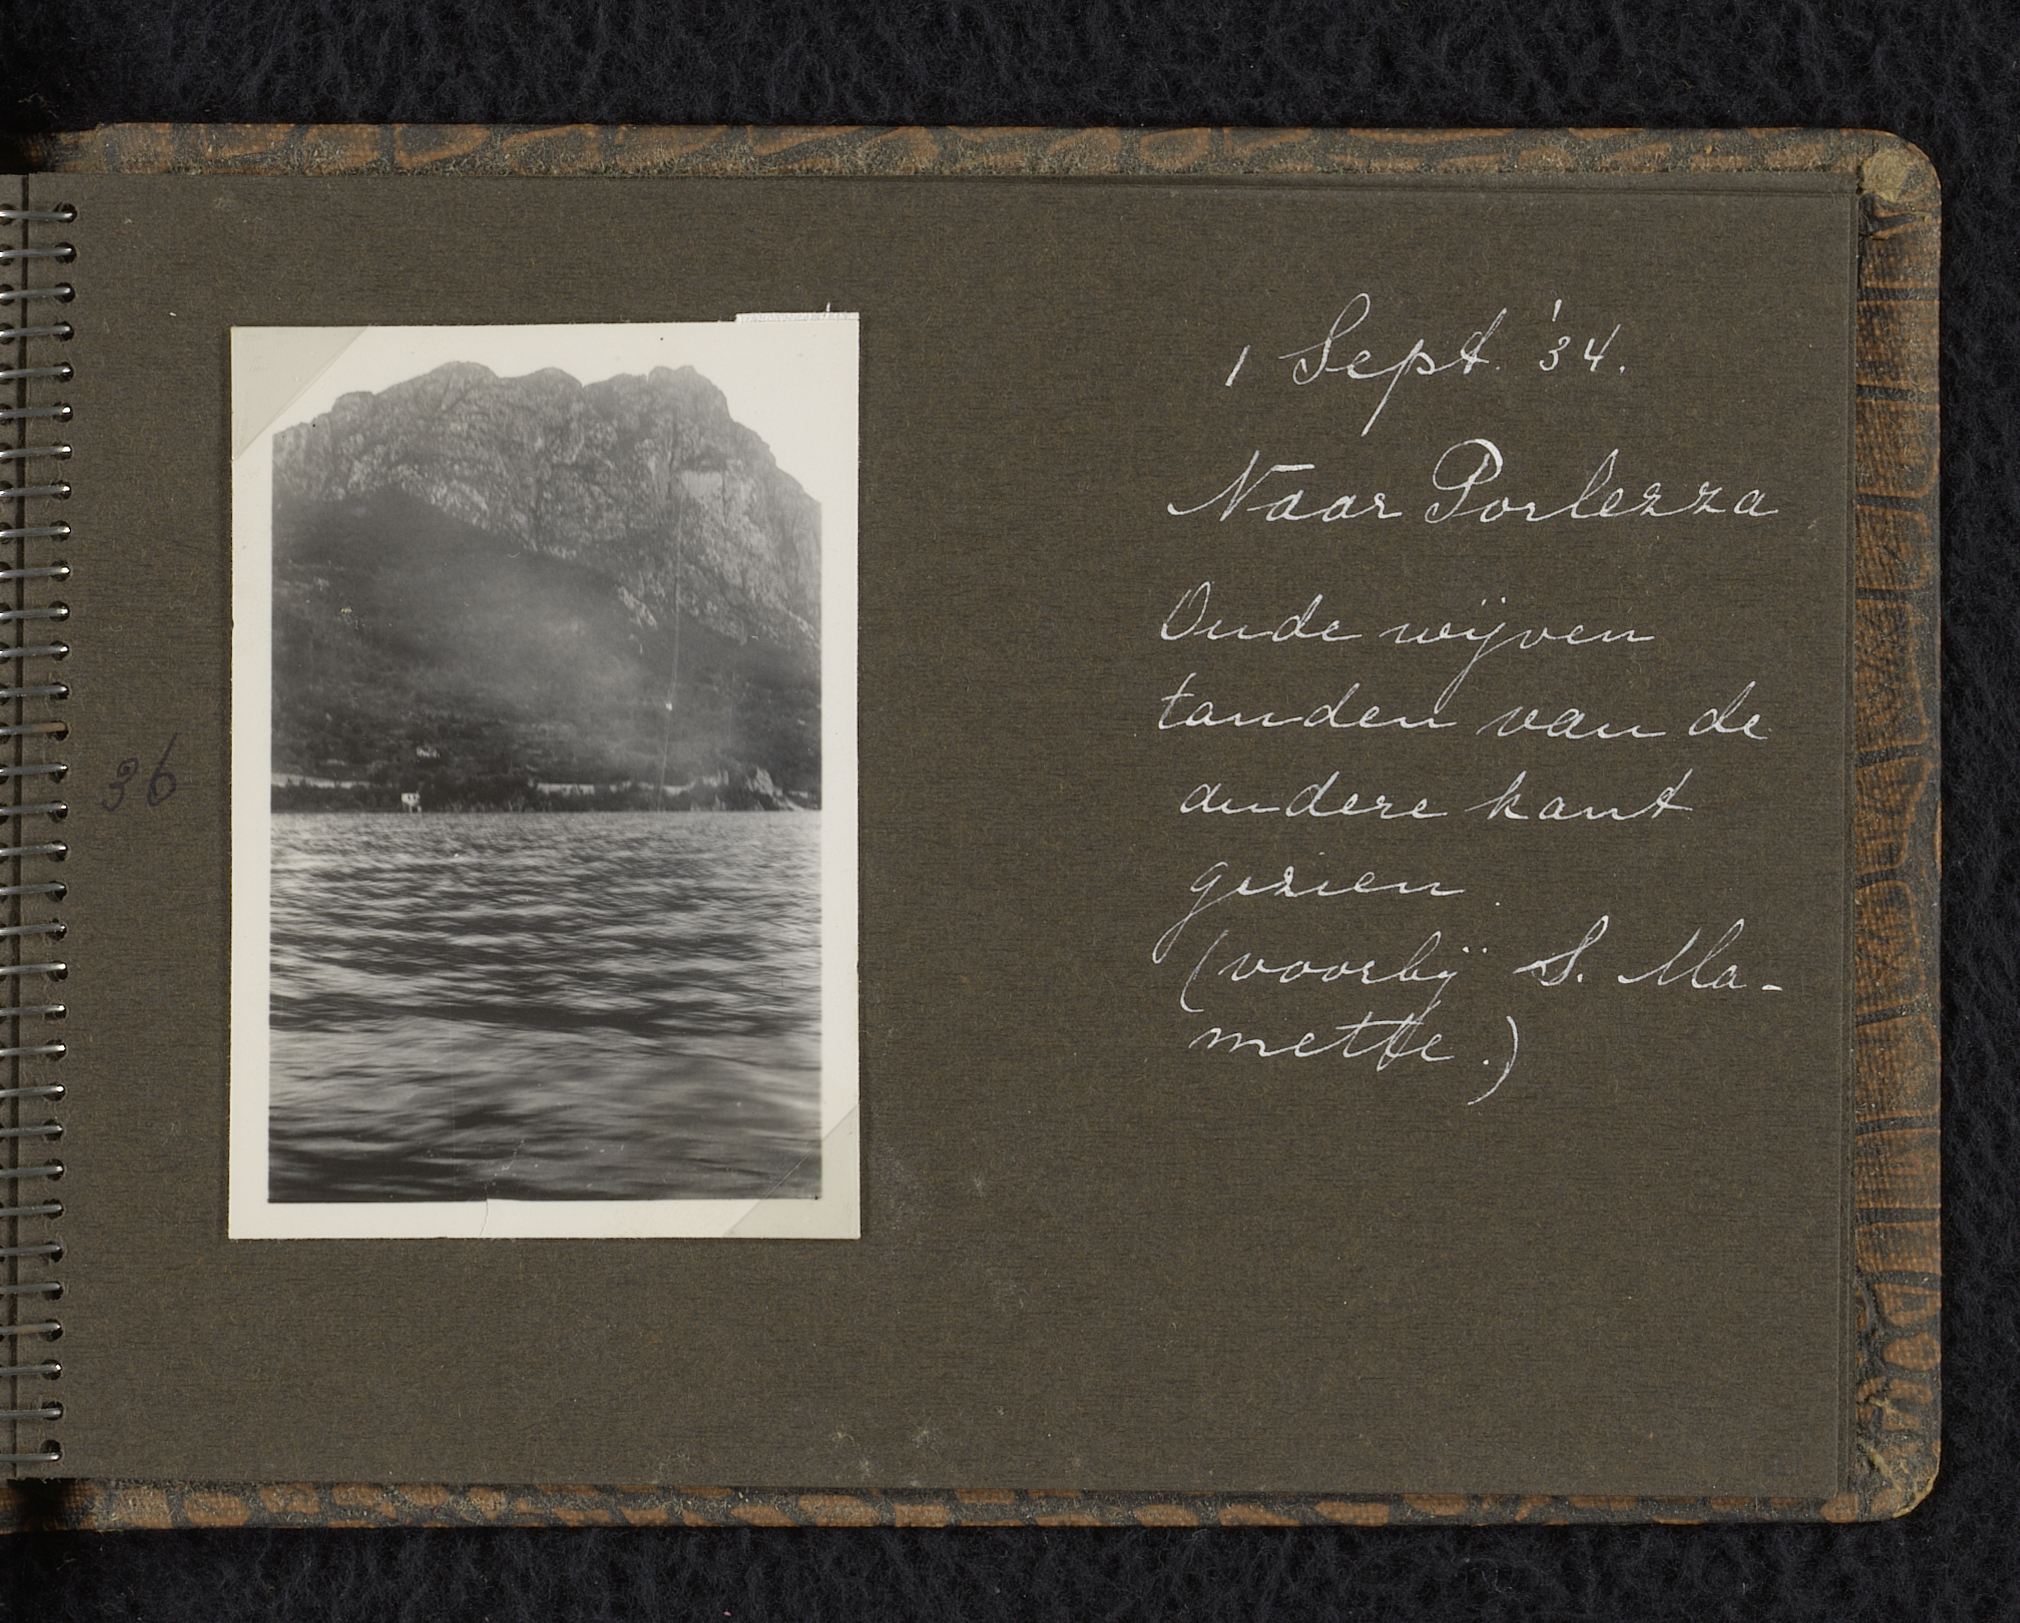 36
1 Sept. '34.
Naar Porlezza
Oude wijven
tanden van de
andere kant
gezien.
(voorbij S. Ma-
mette.)